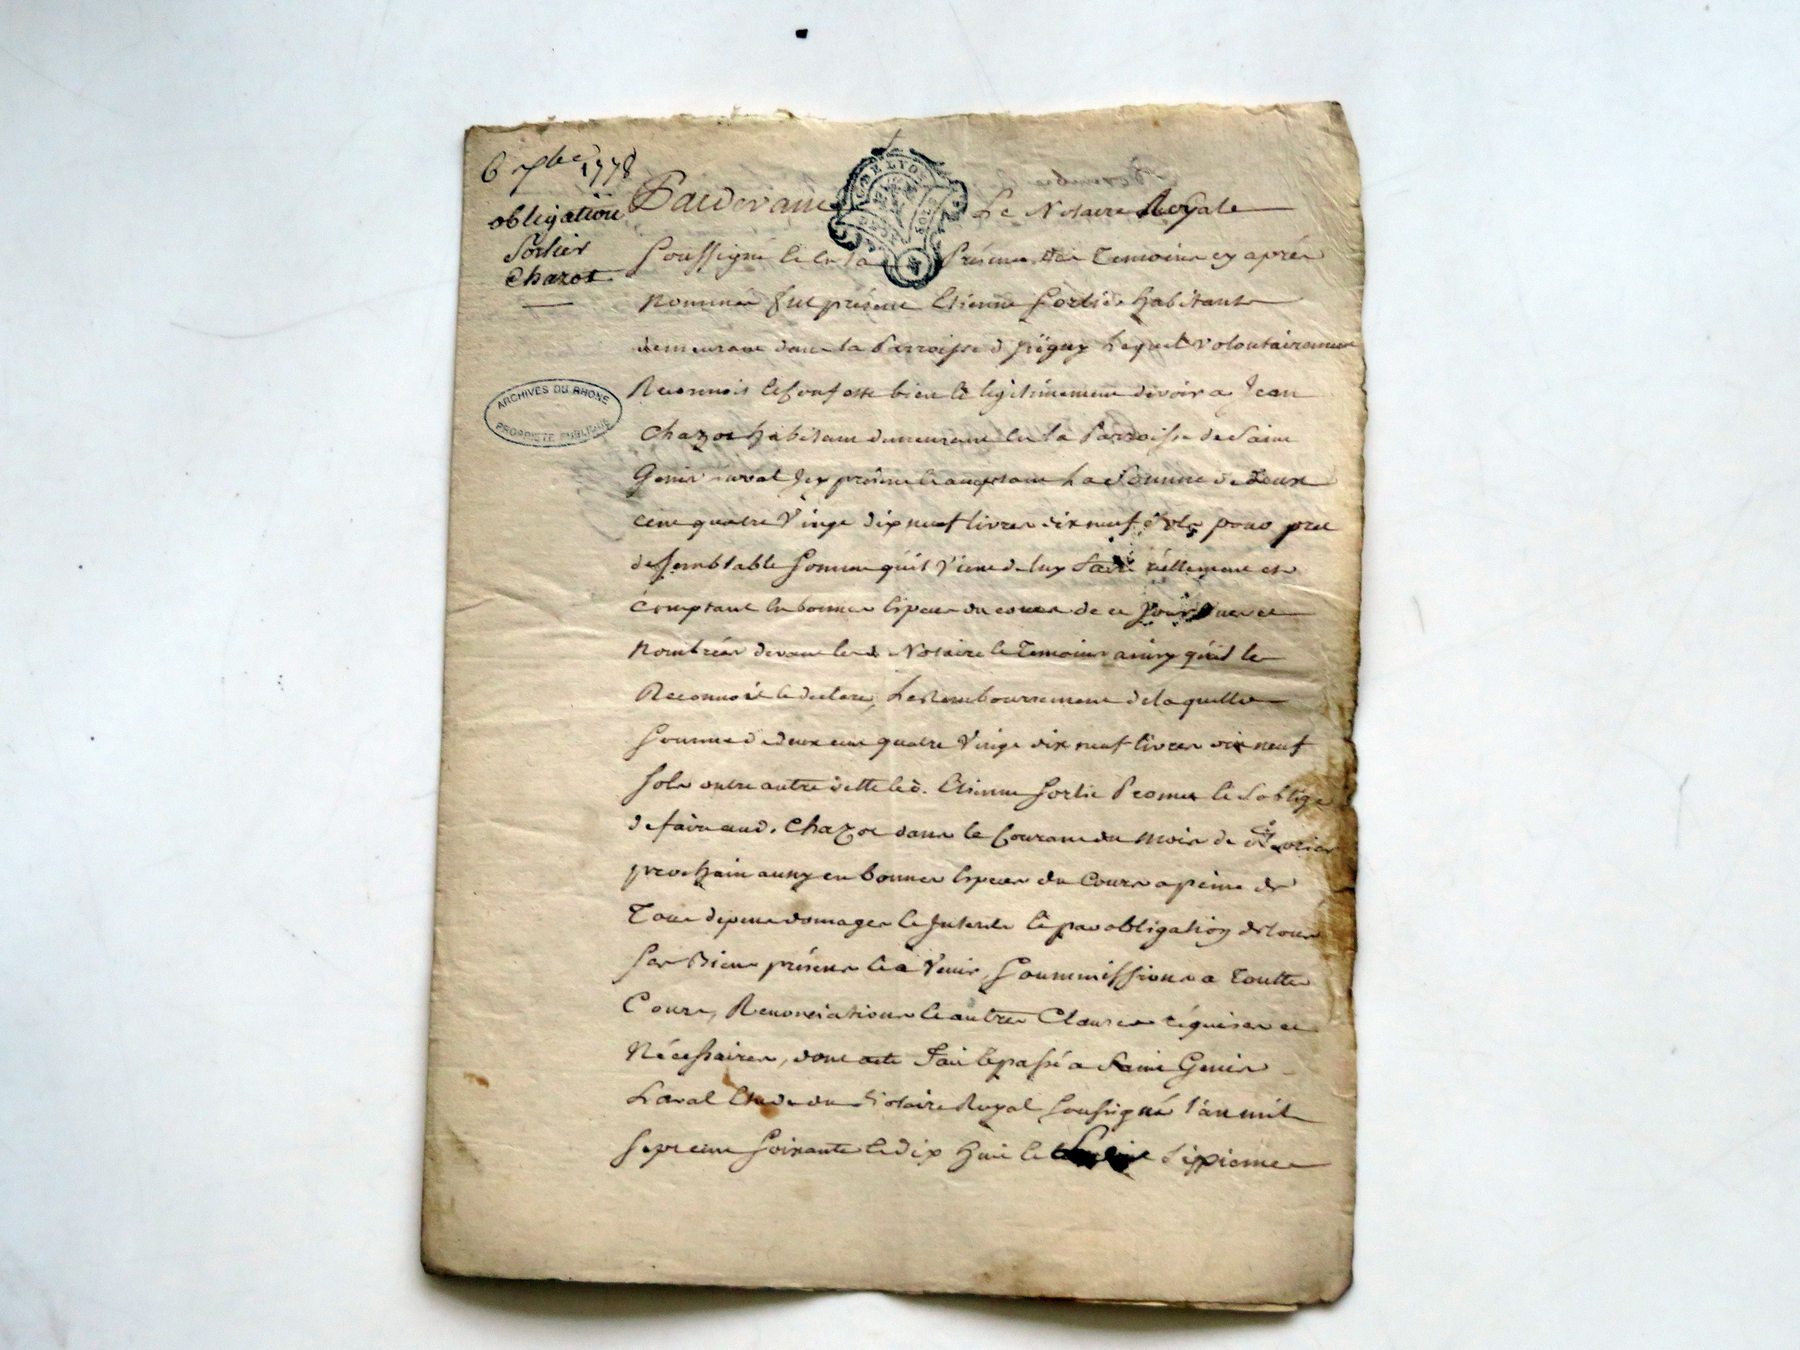 6 7bre 1778
obligation
Sortier
Chazot
ARCHIVES DU RHONE
PROPRIETE PUBLIQUE
DE LYON
Pardevant Le Notaire Royale
Soussigné et en la Présence des Temoins cy après
Nommés fut présent Etienne Sortie habitant
demeurant dans la Parroisse d' Lequel volontairement
Reconnoit et confesse bien et legitimement devoir a Jean
Chazot habitant demeurant en la Parroisse de Saint
Genis Laval icy présent et acceptant La Somme de Deux
cent quatre Vingt dix neuf livres dix neuf sols pour pret
de semblable Somme qu'il Vient de luy faire réellement et
comptant en bonnes especes du cours de ce jour et
Nombrées devant led Notaire et Temoins ainsy qu'il le
Reconnoit et declare, Le Remboursement de laquelle
Somme de deux cent quatre Vingt dix neuf livres dix neuf
sols outre autre dette led. Etienne Sortie Promet et S'oblige
de faire aud. Chazot dans le Courant du mois de
prochain aussy en bonnes especes du Cours a peine de
Tous depens domages et Interets et par obligation de tous
ses Biens présens et a Venir, Soummissions a Toutte
Cours, Renonciations et autres Clauses réquises et
Nécessaires, dont acte Fait et passé a Saint Genis
Laval Etude du Notaire Royal soussigné l'an mil
sept cent soixante et dix huit et le Sixieme